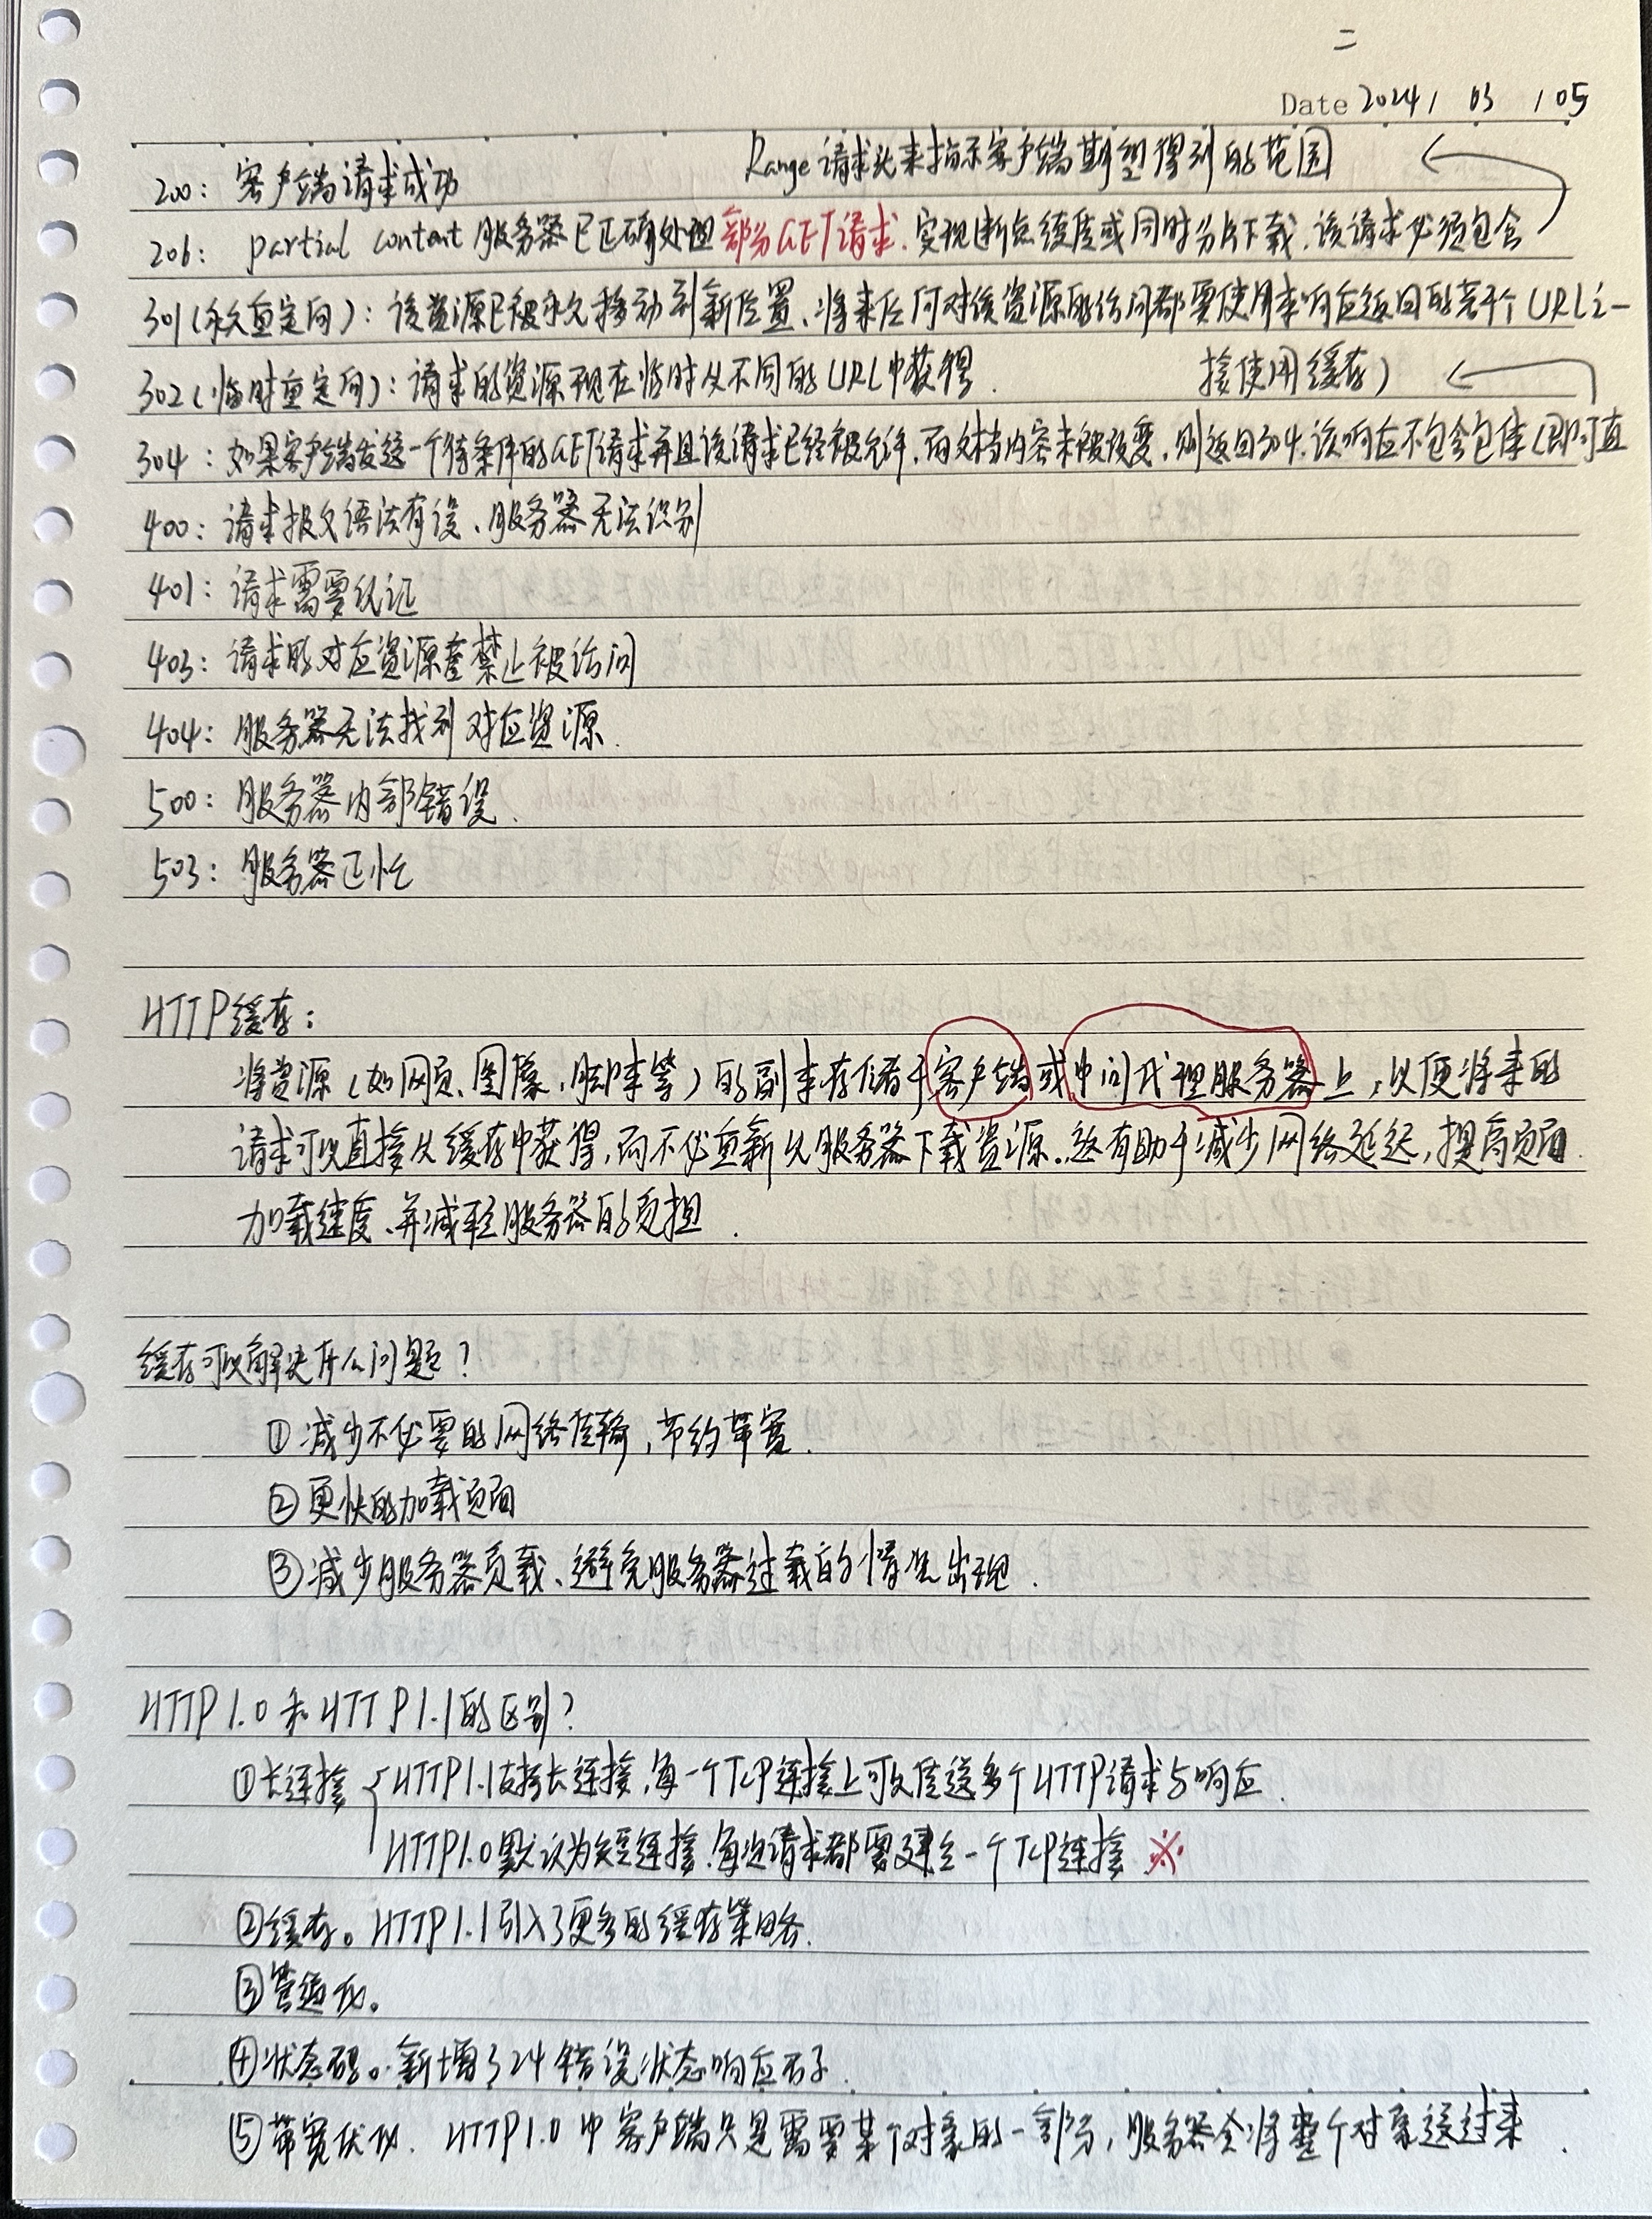 二
Date 2024 / 03 / 05
200: 客户端请求成功
Range 请求头来指示客户端期望得到的范围
206: partial content 服务器已正确处理部分GET请求. 实现断点续传或同时分片下载, 该请求必须包含
301(永久重定向): 该资源已被永久移动到新位置、将来任何对该资源的访问都要使用本响应返回的若干个URL之一
302(临时重定向): 请求的资源现在临时从不同的URL中获得.
接使用缓存)
304: 如果客户端发送一个待条件的GET请求并且该请求已经被允许, 而文档内容未被改变, 则返回304. 该响应不包含包体(即可直
400: 请求报文语法有误、服务器无法识别
401: 请求需要认证
403: 请求的对应资源禁止被访问
404: 服务器无法找到对应资源.
500: 服务器内部错误.
503: 服务器正忙
HTTP缓存:
将资源(如网页、图像、脚本等)的副本存储于客户端或中间代理服务器上, 以便将来的
请求可以直接从缓存中获得, 而不必重新从服务器下载资源. 这有助于减少网络延迟, 提高页面
加载速度、并减轻服务器的负担.
缓存可以解决什么问题?
①减少不必要的网络传输, 节约带宽.
②更快的加载页面
③减少服务器负载、避免服务器过载的情况出现.
HTTP1.0和HTTP1.1的区别?
①长连接 { HTTP1.1支持长连接, 每一个TCP连接上可以传送多个HTTP请求与响应.
HTTP1.0默认为短连接, 每次请求都需要建立一个TCP连接 ※
②缓存。HTTP1.1引入了更多的缓存策略.
③管道化。
④状态码。新增了24错误状态响应码.
⑤带宽优化. HTTP1.0中客户端只是需要某个对象的一部分, 服务器会将整个对象送过来.